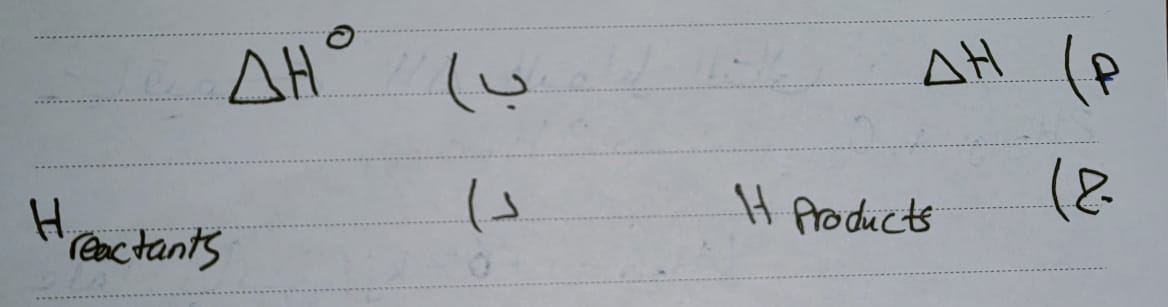 أ) ΔH ب) ΔH°
ج) H Products د) H reactants